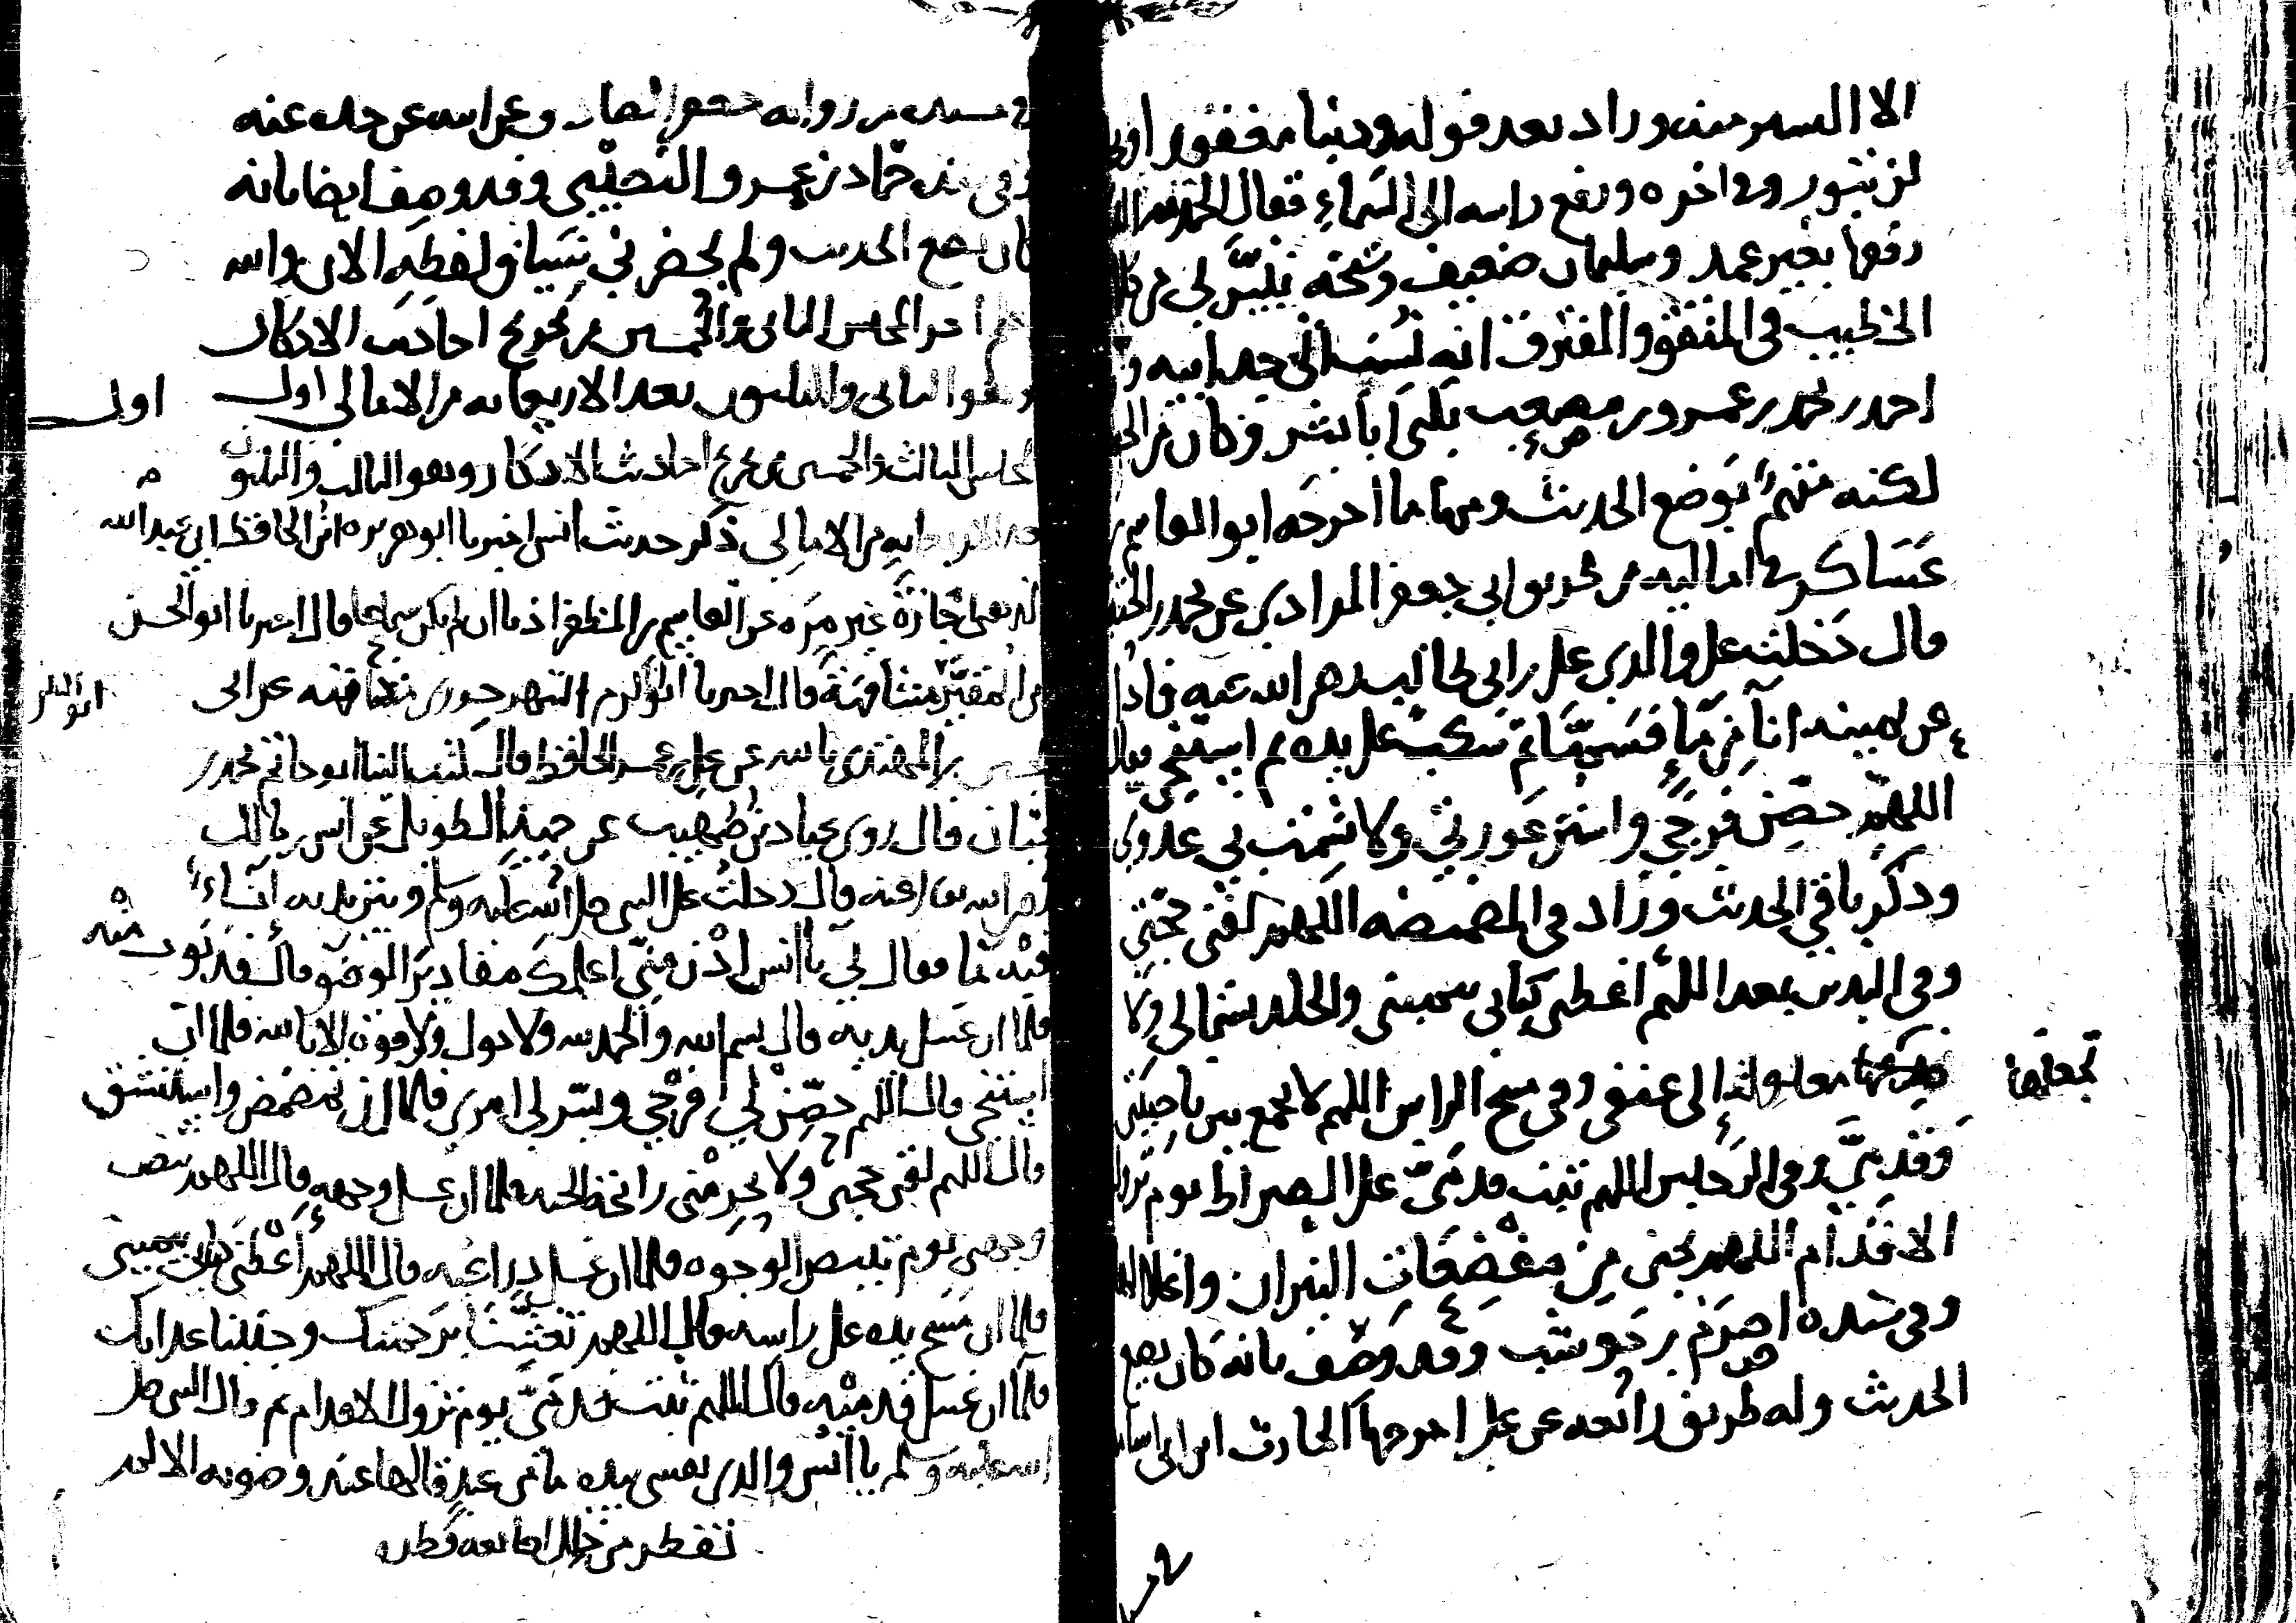 الا السير منه وزاد بعد قوله وذنبا مغفورا
لن تبور وفي اخره ورفع راسه الى السماء فقال الحمد لله
رفعها بغير عمد وسليمان ضعيف وشيخه
الخطيب في المتفق والمفترق انه نسب الى جد ابيه
احمد بن محمد بن عمرو بن مصعب يكنى ابا بشر وكان من
لكنه متهم بوضع الحديث ومنها ما اخرجه ابو القاسم بن
عساكر في اماليه من طريق ابي جعفر المرادي عن محمد بن
قال دخلت على والدي علي بن ابي طالب رضي الله عنه فاذا
عن يمينه انا من ما فسمى ثم سكب على يده ثم استنجى فقال
اللهم حصن فرجي واستر عورتي ولا تشمت بي عدوي
وذكر باقي الحديث وزاد في المضمضه اللهم لقني حجتي
وفي اليدين بعد اللهم اعطني كتابي بيميني والخلد بشمالي ولا
تجعلها
مغلولة الى عنقي وفي مسح الراس اللهم لا تجمع بين ناصيتي
وقدمي وفي الرجلين اللهم ثبت قدمي على الصراط يوم تزل
الاقدام اللهم نجني من مفضعات النيران واغلالها
وفي سنده اصرم بن حوشب وقد وصف بانه كان يضع
الحديث وله طريق رابعه عن علي اخرجها الحارث ابن ابي اسامة
في مسنده من روايه جعفر الصادق عن ابيه عن جده عنه
وفي سنده حماد بن عمرو النصيبي وقد وصف ايضا بانه
كان يضع الحديث ولم يحضرني سياق لفظه الان والله
اعلم اخر المجلس الثاني والخمسين من تخريج احاديث الاذكار
وهو الثاني والثلثون بعد الاربعمايه من الامالي اولى
اولى
المجلس الثالث والخمسين من تخريج احاديث الاذكار وهو الثالث والثلثون
بعد الاربعمايه من الامالي ذكر حديث انس اخبرنا ابو هريره ابن الحافظ ابي عبد الله
الذهبي اجازة غير مره عن القاسم بن المظفر اذنا ان لم يكن سماعا قال اخبرنا ابو الحسن
بن المقير مشافهة قال اخبرنا ابو الكرم الشهرزوري مشافهة عن ابي
الحسين بن المهتدى بالله عن علي بن عمر الحافظ قال كتب الينا ابو حاتم محمد بن
حبان قال روى عباد بن صهيب عن حميد الطويل عن انس بن مالك
رضي الله تعالى عنه قال دخلت على النبي صلى الله عليه وسلم وبين يديه اناء
فيه ما فقال لي يا انس ادن مني اعلمك مقادير الوضو قال فدنوت منه
فلما ان غسل يديه قال بسم الله والحمد لله ولا حول ولا قوة الا بالله فلما ان
استنجى قال اللهم حصن لي فرجي ويسر لي امري فلما ان تمضمض واستنشق
قال اللهم لقني حجتي ولا تحرمني رائحة الجنه فلما ان غسل وجهه قال اللهم بيض
وجهي يوم تبيض الوجوه فلما ان غسل ذراعيه قال اللهم اعطني كتابي بيميني
فلما ان مسح يده على راسه قال اللهم تغشنا برحمتك وجنبنا عذابك
فلما ان غسل قدميه قال اللهم ثبت قدمي يوم تزول الاقدام ثم قال النبي صلى
الله عليه وسلم يا انس والذي نفسي بيده ما من عبد قالها عند وضوئه الا لم
تقطر من خلل اصابعه قطره